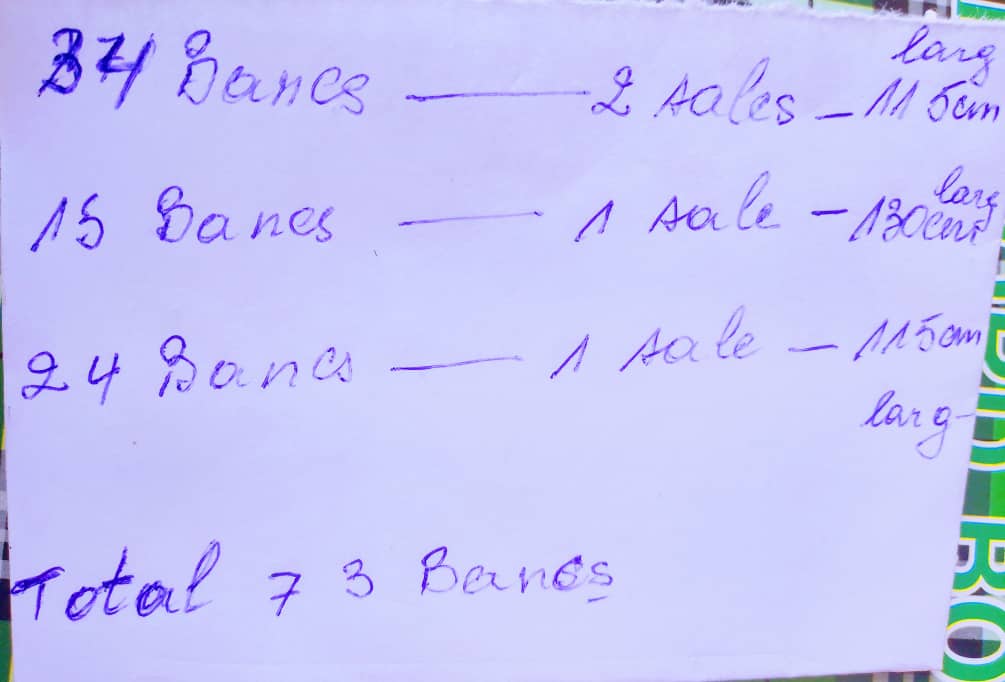 34 Bancs — 2 sales - 115cm larg
15 Bancs — 1 sale - 130cm larg
24 Bancs — 1 sale - 115cm larg
Total 73 Bancs
BO